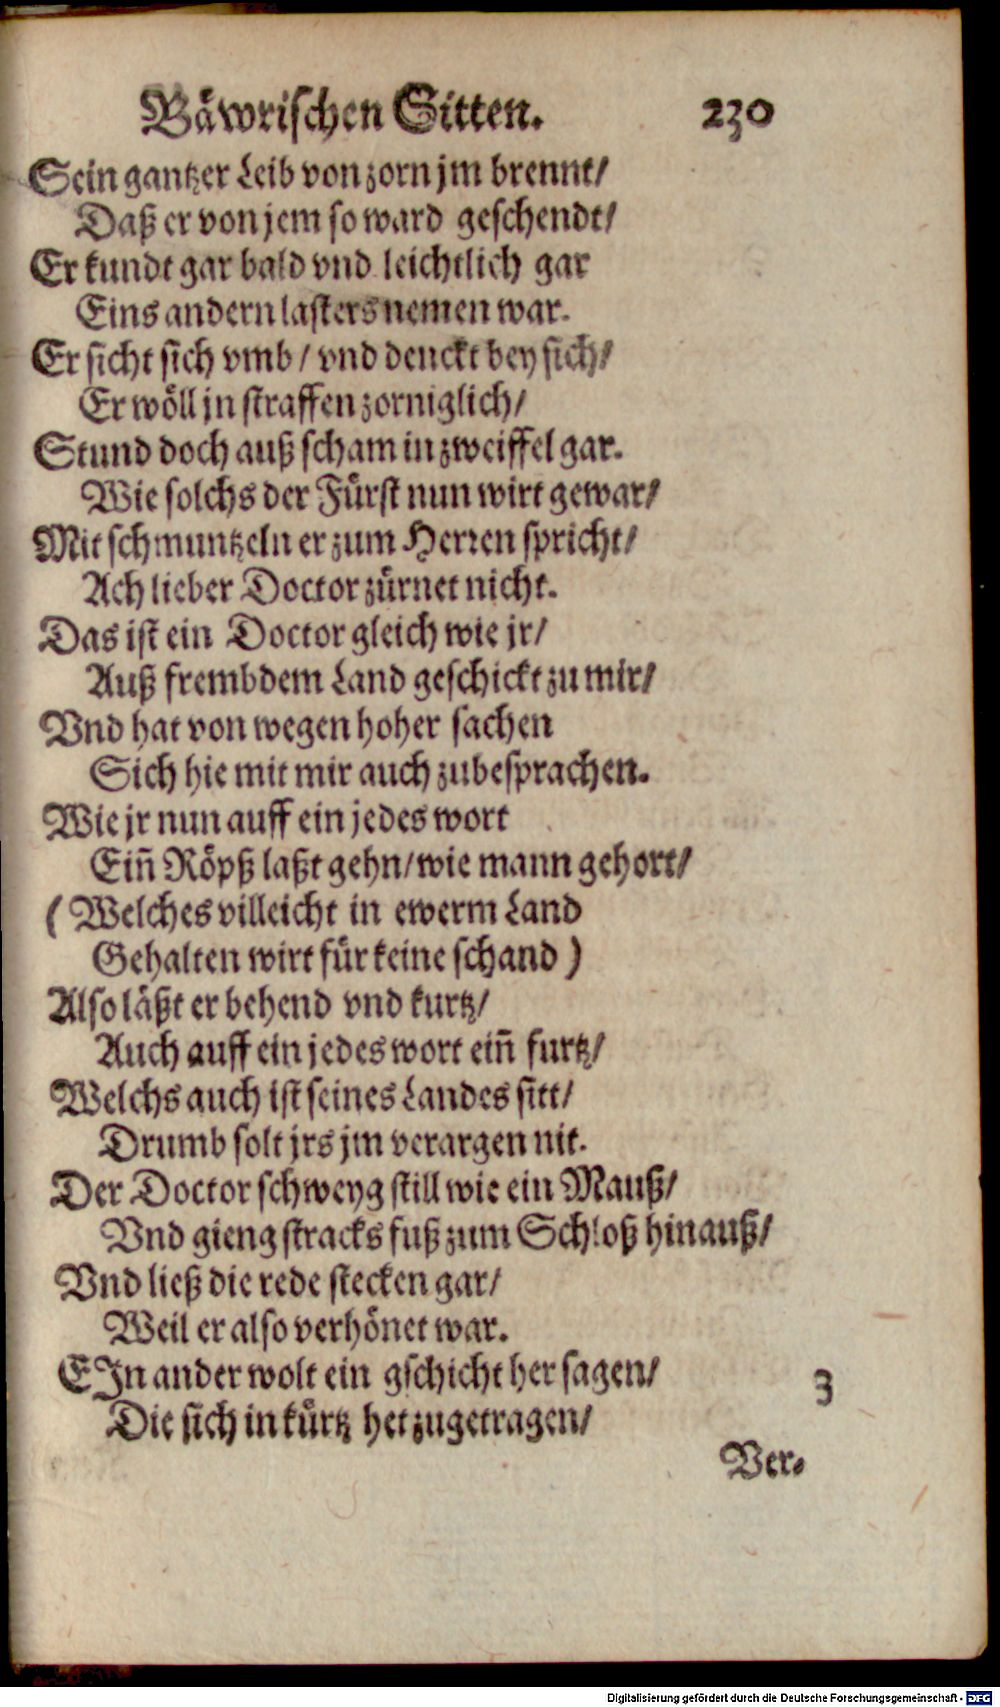 Bäwrischen Sitten. 230
Sein gantzer Leib von zorn jm brennt/
Daß er von jem so ward geschendt/
Er kundt gar bald vnd leichtlich gar
Eins andern lasters nemen war.
Er sicht sich vmb / vnd denckt bey sich/
Er wöll jn straffen zorniglich/
Stund doch auß scham in zweiffel gar.
Wie solchs der Fürst nun wirt gewar/
Mit schmuntzeln er zum Herren spricht/
Ach lieber Doctor zürnet nicht.
Das ist ein Doctor gleich wie jr/
Auß frembdem Land geschickt zu mir/
Vnd hat von wegen hoher sachen
Sich hie mit mir auch zubesprachen.
Wie jr nun auff ein jedes wort
Eiñ Röpß laßt gehn/ wie mann gehort/
( Welches villeicht in ewerm Land
Gehalten wirt für keine schand )
Also läßt er behend vnd kurtz/
Auch auff ein jedes wort eiñ furtz/
Welchs auch ist seines Landes sitt/
Drumb solt jrs jm verargen nit.
Der Doctor schweyg still wie ein Mauß/
Vnd gieng stracks fuß zum Schloß hinauß/
Vnd ließ die rede stecken gar/
Weil er also verhönet war.
EJn ander wolt ein gschicht her sagen/
3
Die sich in kürtz het zugetragen/
Ver-
Digitalisierung gefördert durch die Deutsche Forschungsgemeinschaft - DFG